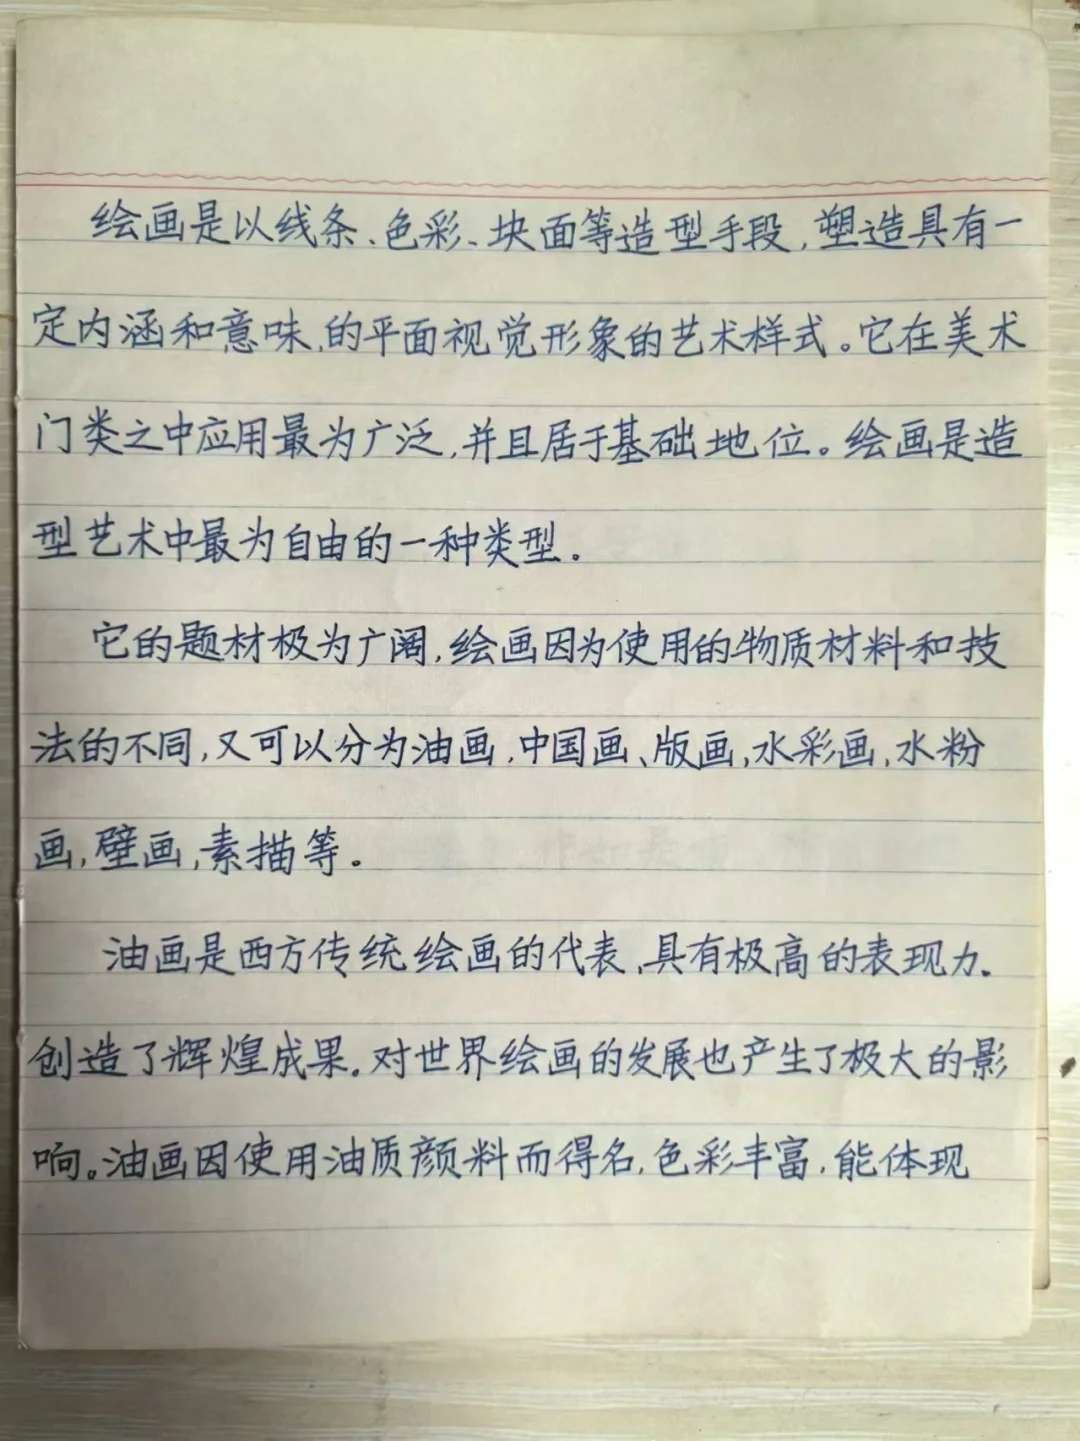 绘画是以线条、色彩、块面等造型手段,塑造具有一
定内涵和意味,的平面视觉形象的艺术样式。它在美术
门类之中应用最为广泛,并且居于基础地位。绘画是造
型艺术中最为自由的一种类型。
它的题材极为广阔,绘画因为使用的物质材料和技
法的不同,又可以分为油画,中国画、版画,水彩画,水粉
画,壁画,素描等。
油画是西方传统绘画的代表,具有极高的表现力.
创造了辉煌成果.对世界绘画的发展也产生了极大的影
响。油画因使用油质颜料而得名,色彩丰富,能体现